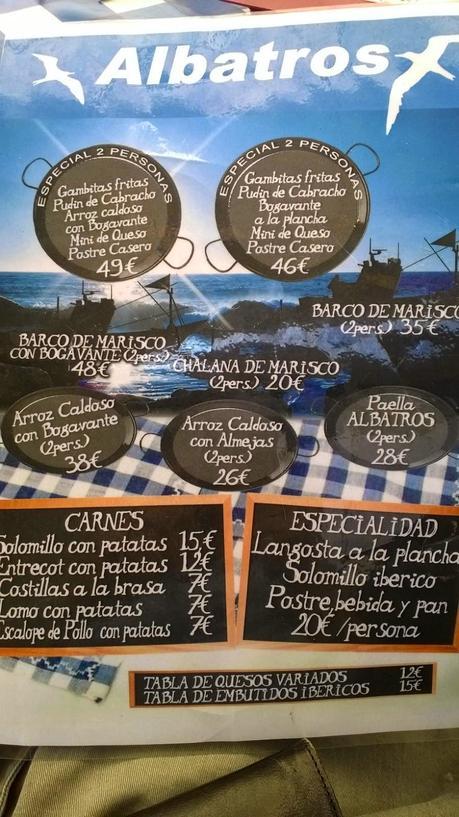 Albatros
ESPECIAL 2 PERSONAS
Gambitas fritas
Pudin de Cabracho
Arroz caldoso
con Bogavante
Mini de Queso
Postre Casero
49€
ESPECIAL 2 PERSONAS
Gambitas fritas
Pudin de Cabracho
Bogavante
a la plancha
Mini de Queso
Postre Casero
46€
BARCO DE MARISCO
(2pers.) 35€
BARCO DE MARISCO
CON BOGAVANTE (2pers.)
48€
CHALANA DE MARISCO
(2pers.) 20€
Arroz Caldoso
con Bogavante
(2pers.)
38€
Arroz Caldoso
con Almejas
(2pers.)
26€
Paella
ALBATROS
(2pers.)
28€
CARNES
Solomillo con patatas 15€
Entrecot con patatas 12€
Costillas a la brasa 7€
Lomo con patatas 7€
Escalope de Pollo con patatas 7€
ESPECIALIDAD
Langosta a la plancha
Solomillo iberico
Postre, bebida y pan
20€ /persona
TABLA DE QUESOS VARIADOS 12€
TABLA DE EMBUTIDOS IBERICOS 15€